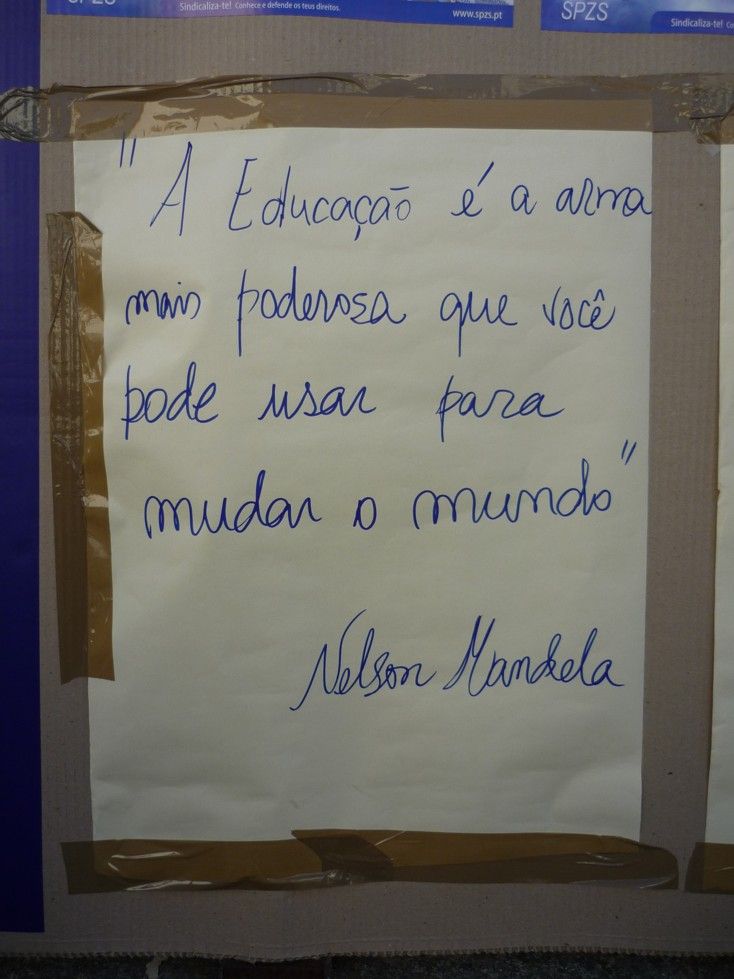 SPZS
Sindicaliza-te! Conhece e defende os teus direitos.
www.spzs.pt
SPZS
Sindicaliza-te!
"A Educação é a arma
mais poderosa que você
pode usar para
mudar o mundo"
Nelson Mandela